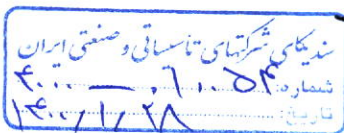 سندیکای شرکتهای تأسیساتی و صنعتی ایران
شماره:
تاریخ: ۱۴۰۰/۱/۲۸